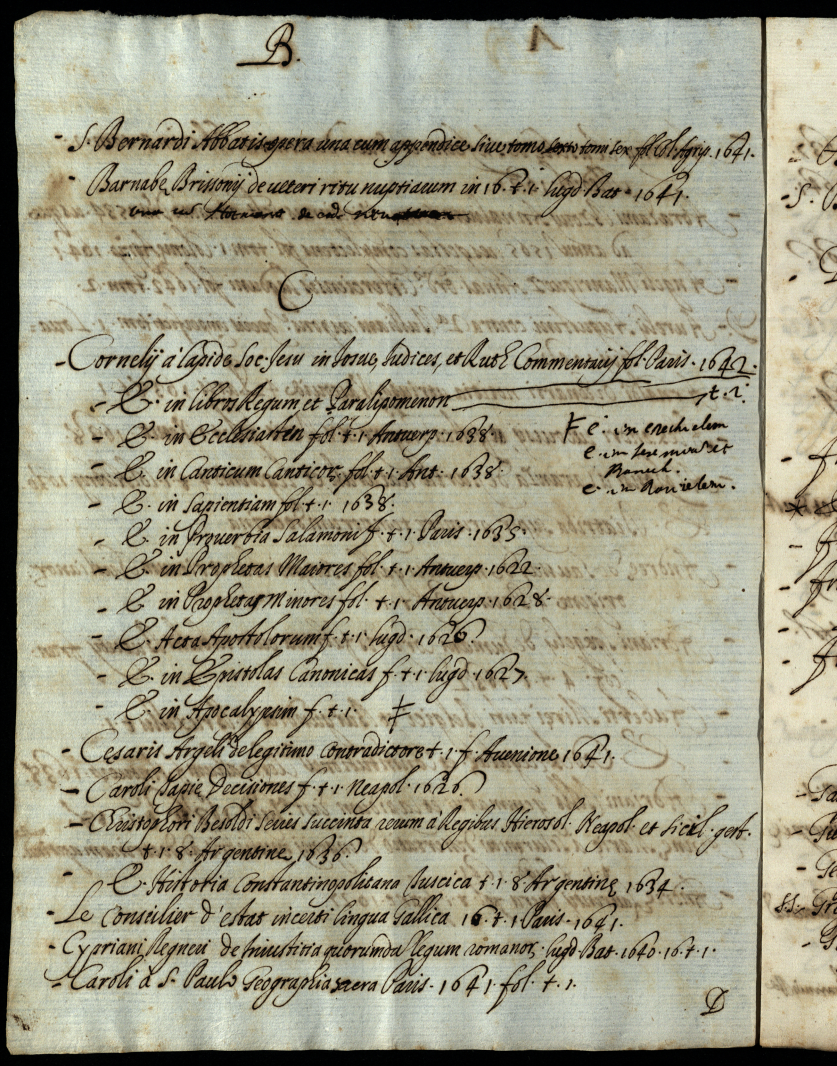 B.
- S. Bernardi Abbatis opera una cum appendice sive tomo sexto tom sex fol. Col. Agrip. 1641.
- Barnabę Brissonij de veteri ritu nuptiarum in 16. t. 1. lugd. Bat. 1641.
una cum Hotmano de
C
- Cornelij à lapide Soc. Jesu in Iosue, Iudices, et Ruth Commentarij fol. Paris. 1642.
- E. in libros Regum et Paralipomenon t. 2.
- E. in Ecclesiasten fol. t. 1. Antuerp. 1638.
- E. in Canticum Canticor. fol. t. 1. Ant. 1638.
- E. in Sapientiam fol. t. 1. 1638.
- E. in Proverbia Salamoni f. t. 1. Paris. 1635.
- E. in Prophetas Maiores fol. t. 1. Antuerp. 1622.
- E. in Prophetas Minores fol. t. 1. Antuerp. 1628.
- E. Acta Apostolorum f. t. 1. lugd. 1626.
- E. in Epistolas Canonicas f. t. 1. lugd. 1627.
- E. in Apocalypsim f. t. 1.
e. in ezechielem
e. in Jeremiam et
Baruch.
e. in Danielem.
- Cęsaris Argeli de legitimo Contradictore t. 1. f. Avenione 1641.
- Caroli Tapię Decisiones f. t. 1. Neapol. 1626.
- Christophori Besoldi Series Succinta rerum à Regibus Hierosol. Neapol. et Sicil. gest.
t. 1. 8. Argentinę 1636.
- E. Historia Constantinopolitana Turcica t. 1. 8. Argentinę 1634.
- Le Conseilier d'estat incerti lingua Gallica 16. t. 1. Paris. 1641.
- Cypriani Regneri de Iniustitia quorumda legum romanor. lugd. Bat. 1640. 16. t. 1.
- Caroli à S. Paulo Geographia sacra Paris. 1641. fol. t. 1.
D